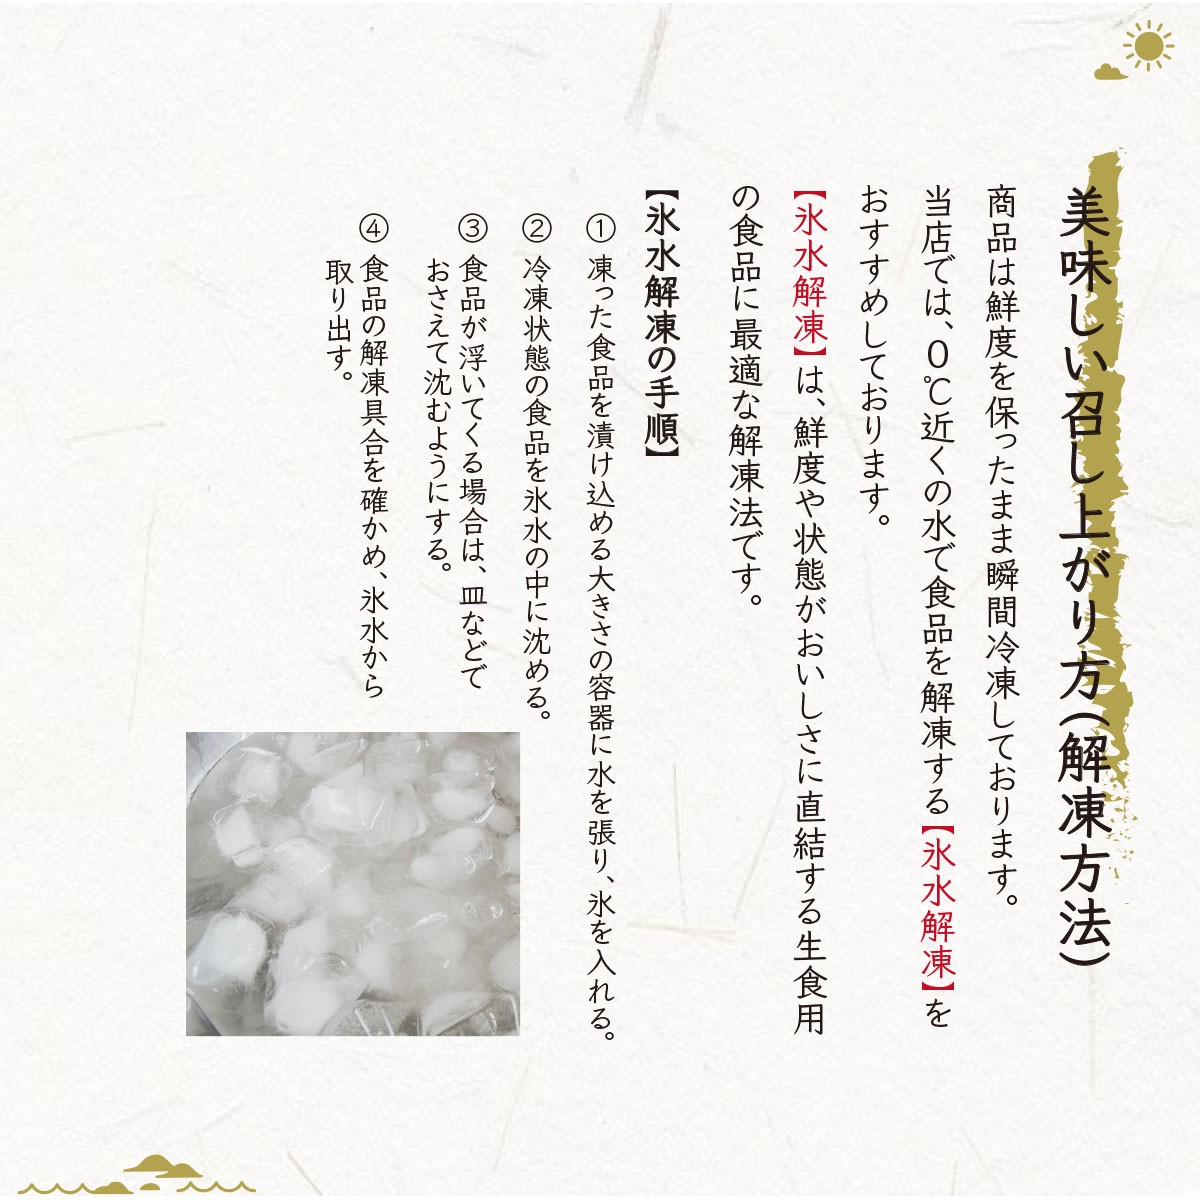 美味しい召し上がり方(解凍方法)
商品は鮮度を保ったまま瞬間冷凍しております。
当店では、0℃近くの水で食品を解凍する【氷水解凍】を
おすすめしております。
【氷水解凍】は、鮮度や状態がおいしさに直結する生食用
の食品に最適な解凍法です。
【氷水解凍の手順】
① 凍った食品を漬け込める大きさの容器に水を張り、氷を入れる。
② 冷凍状態の食品を氷水の中に沈める。
③ 食品が浮いてくる場合は、皿などで
おさえて沈むようにする。
④ 食品の解凍具合を確かめ、氷水から
取り出す。